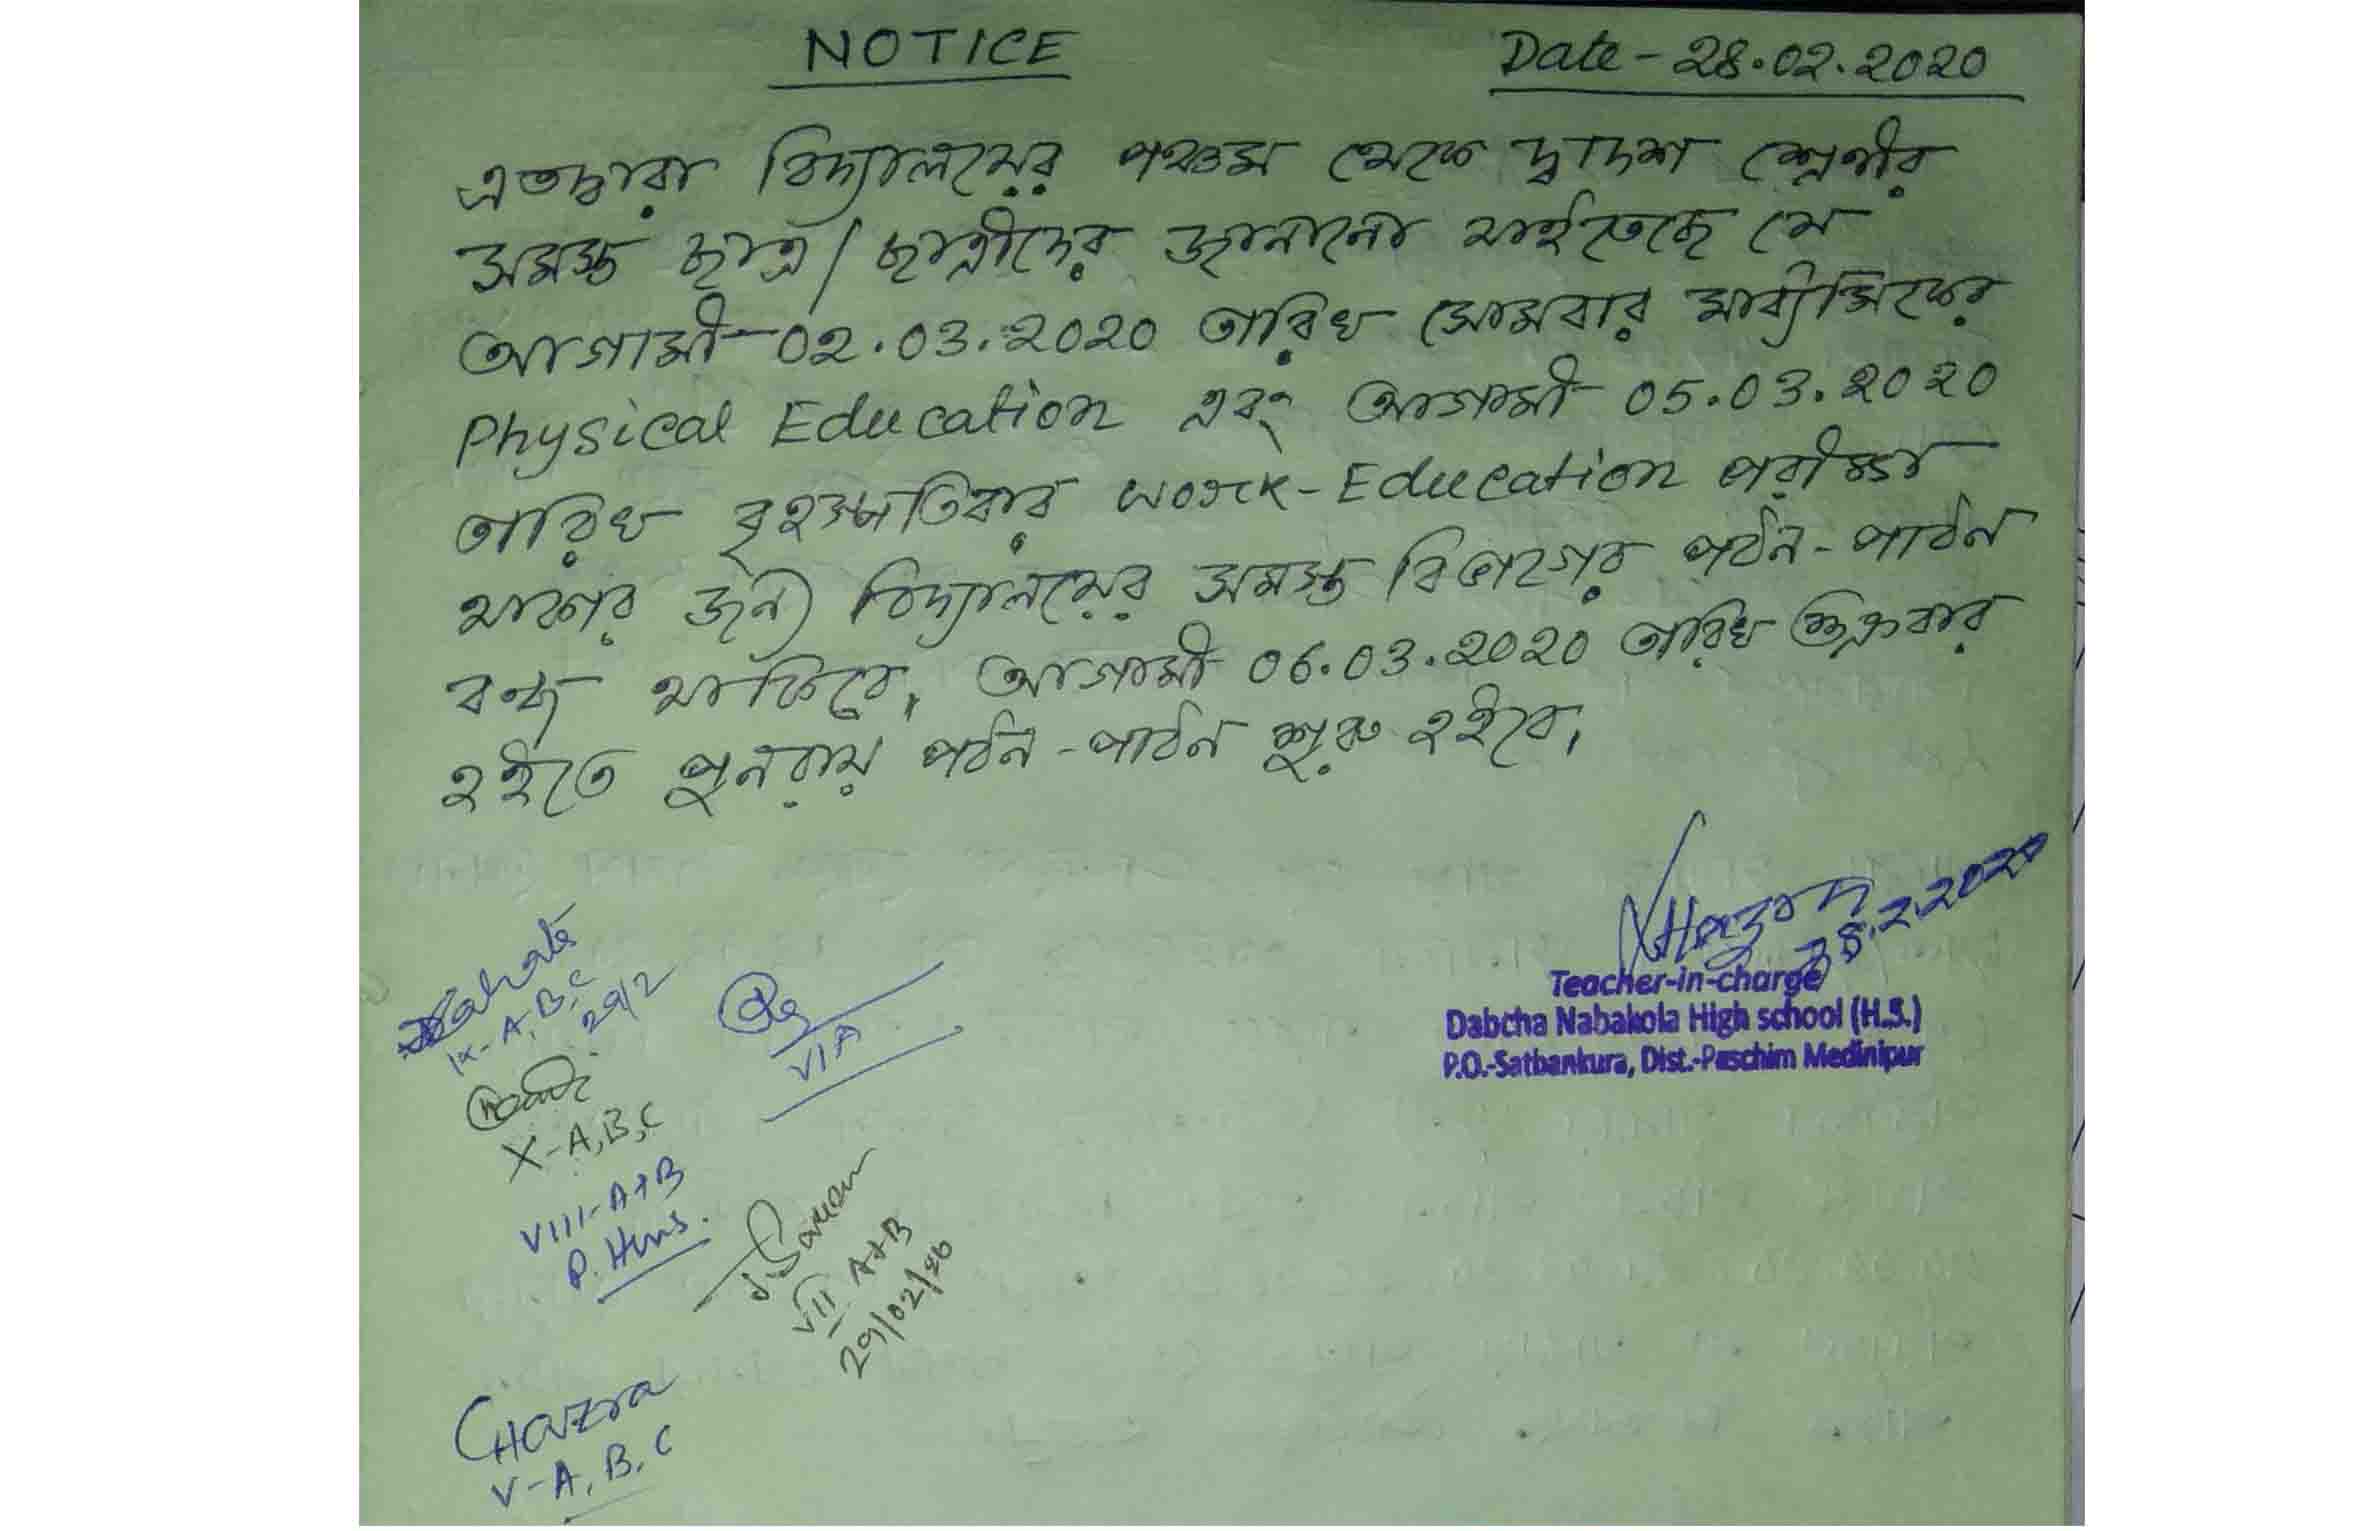 NOTICE
Date - 28.02.2020
এতদ্বারা বিদ্যালয়ের পঞ্চম থেকে দ্বাদশ শ্রেণীর
সমস্ত ছাত্র/ছাত্রীদের জানানো যাইতেছে যে
আগামী 02.03.2020 তারিখ সোমবার মাধ্যমিকের
Physical Education এবং আগামী 05.03.2020
তারিখ বৃহস্পতিবার Work-Education পরীক্ষা
থাকার জন্য বিদ্যালয়ের সমস্ত বিভাগের পঠন-পাঠন
বন্ধ থাকিবে। আগামী 06.03.2020 তারিখ শুক্রবার
হইতে পুনরায় পঠন-পাঠন শুরু হইবে।
28.2.2020
Teacher-in-charge
Dabcha Nabakola High school (H.S.)
P.O.-Satbankura, Dist.-Paschim Medinipur
IX-A,B,C
29/2
VIA
X-A,B,C
VIII-A+B
VII A+B
29/02/20
CHazra
V-A, B, C